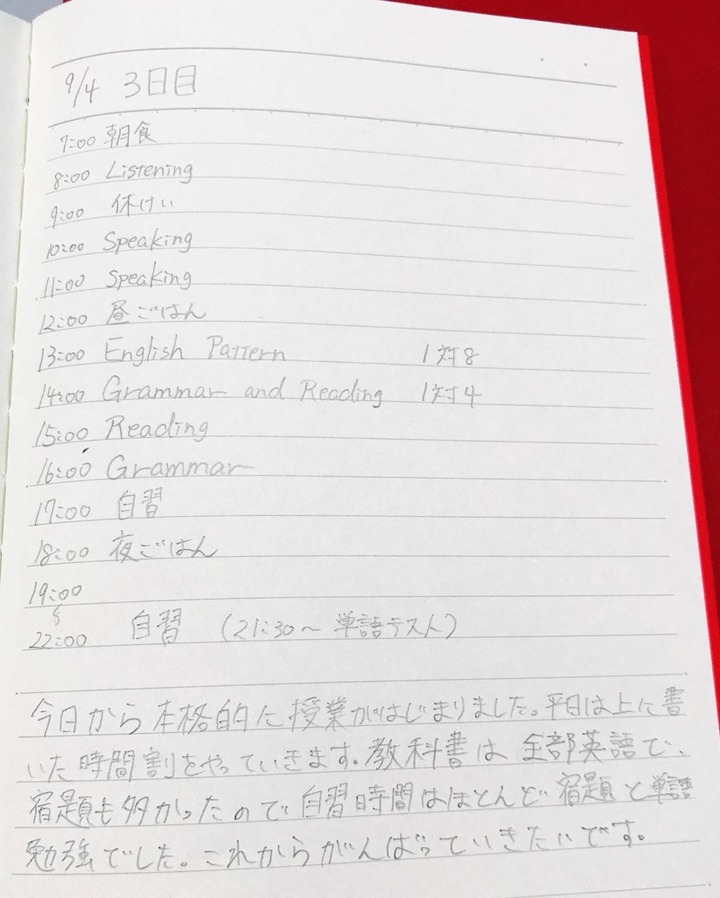 9/4 3日目
7:00 朝食
8:00 Listening
9:00 休けい
10:00 Speaking
11:00 Speaking
12:00 昼ごはん
13:00 English Pattern 1対8
14:00 Grammar and Reading 1対4
15:00 Reading
16:00 Grammar
17:00 自習
18:00 夜ごはん
19:00
〜
22:00 自習 (21:30〜 単語テスト)
今日から本格的に授業がはじまりました。平日は上に書
いた時間割をやっていきます。教科書は全部英語で、
宿題も多かったので自習時間はほとんど宿題と単語
勉強でした。これからがんばっていきたいです。